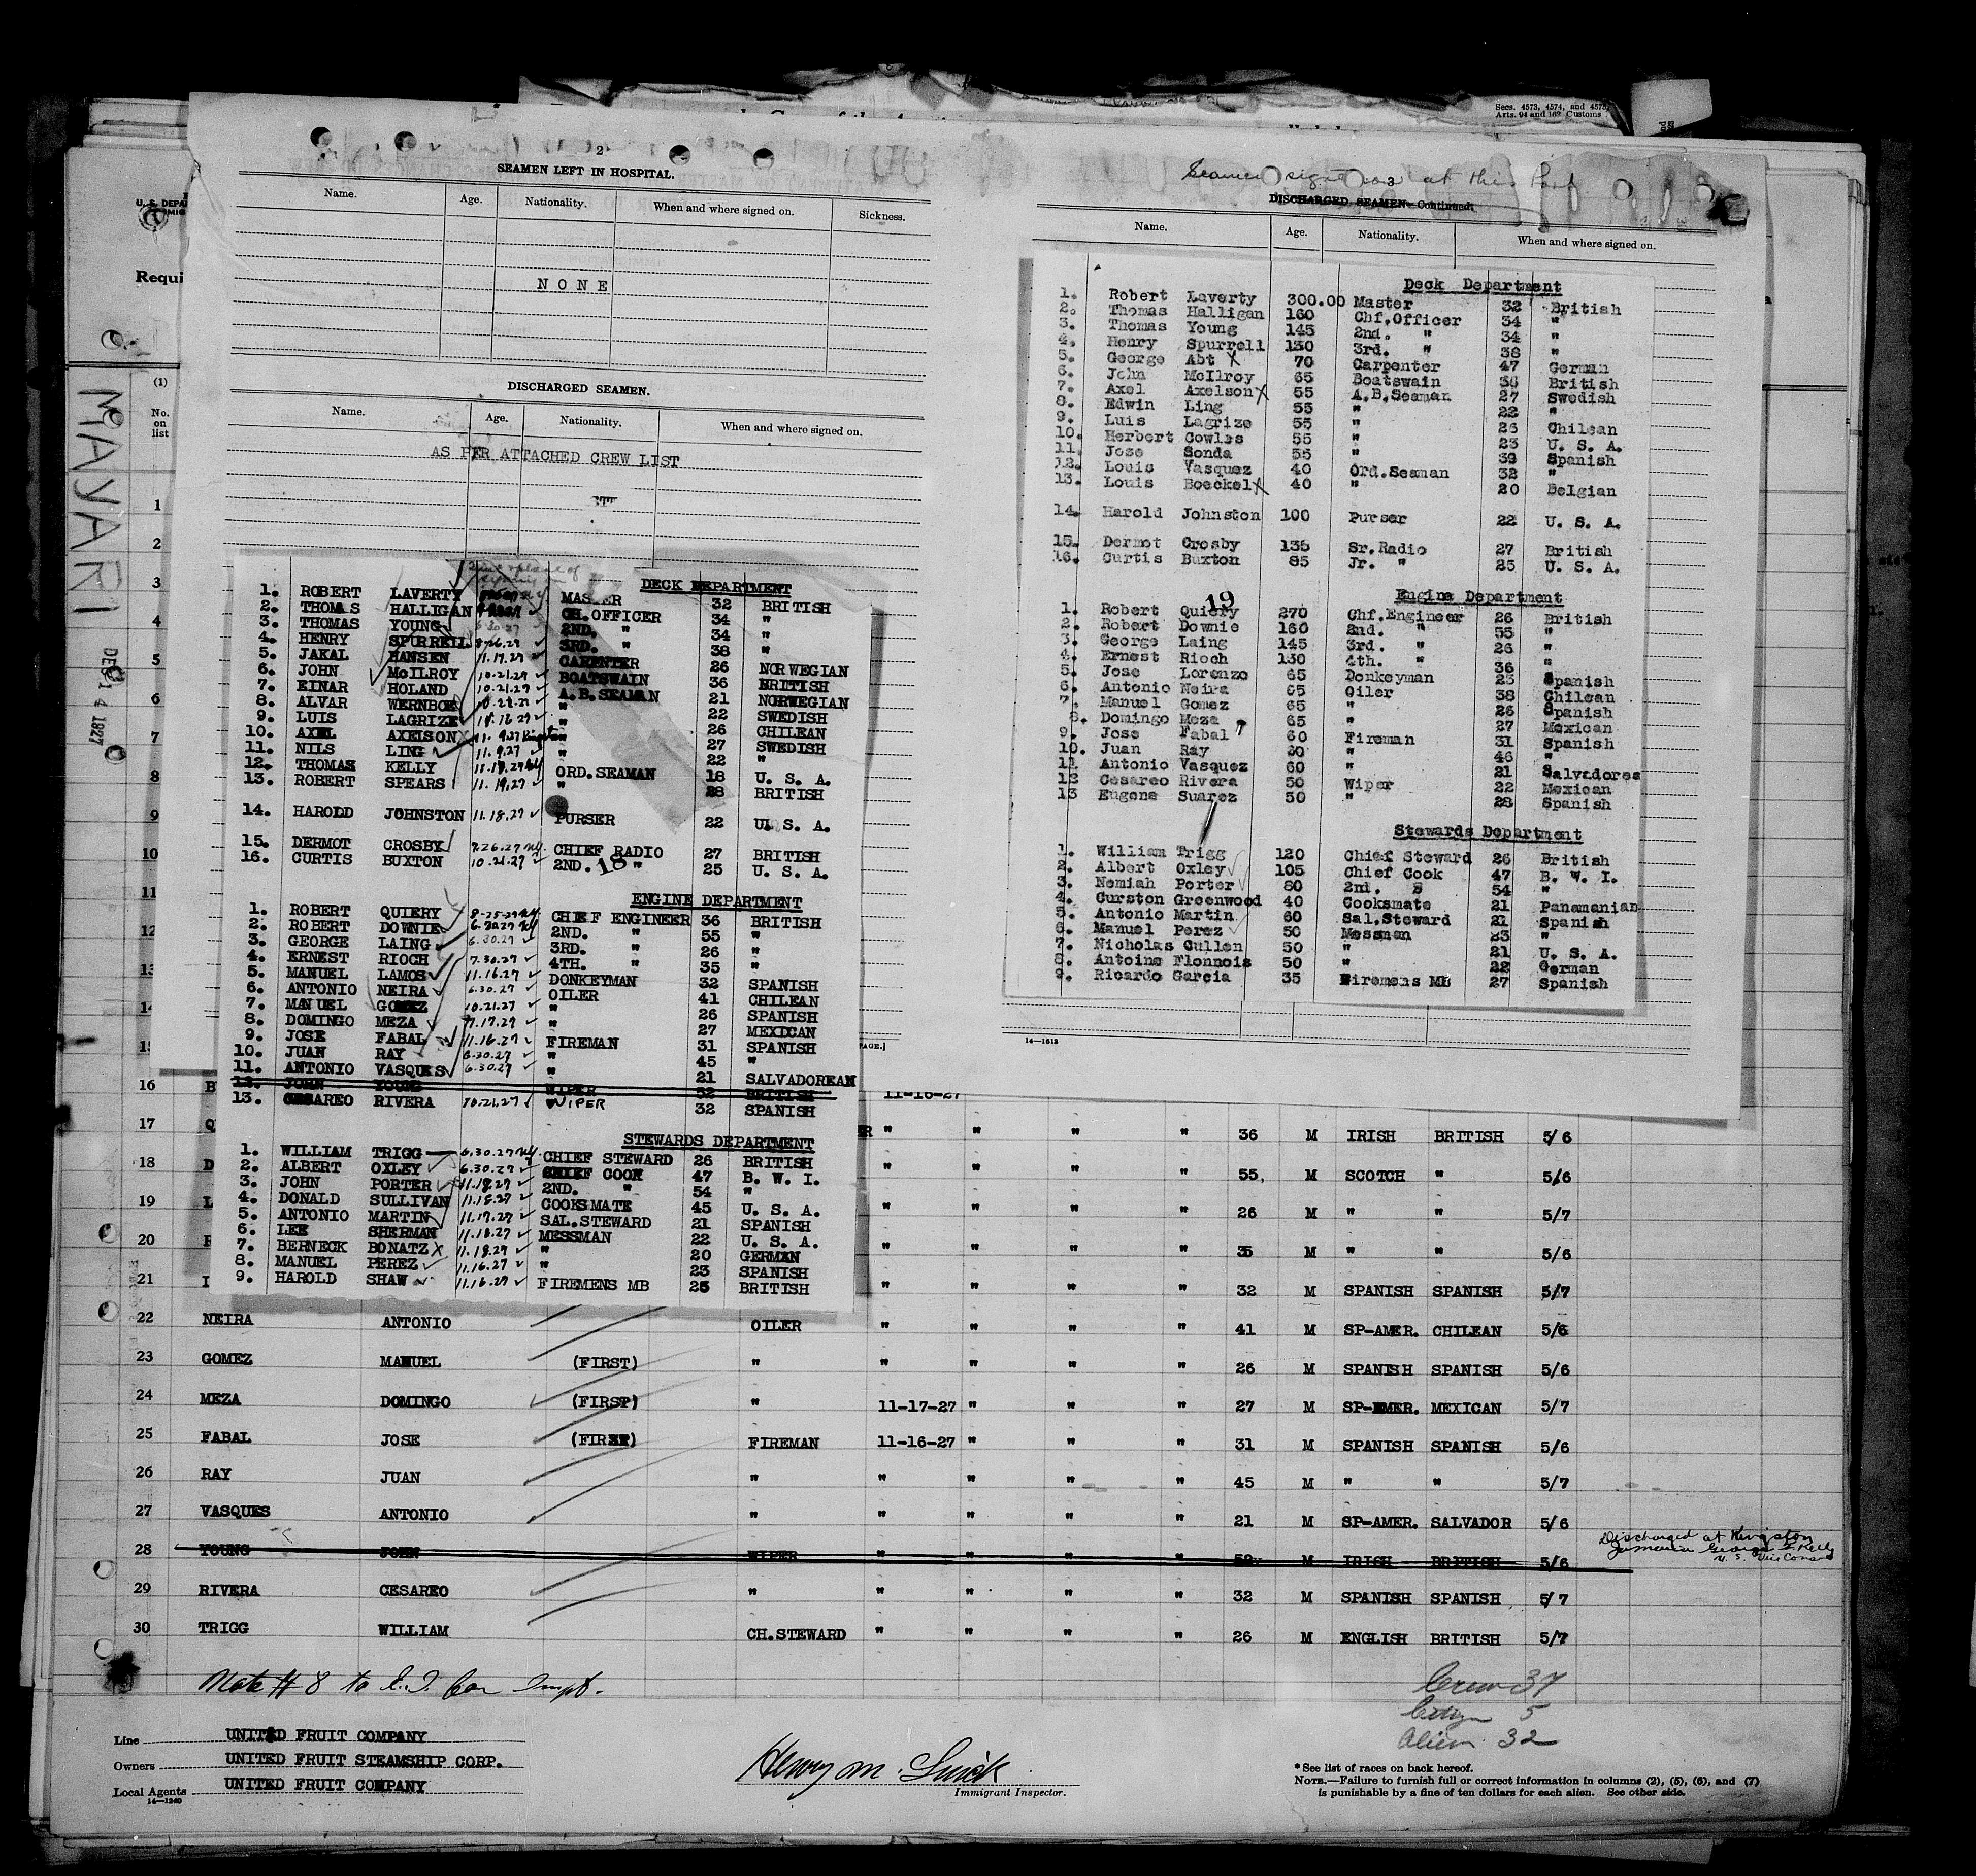 Secs. 4573, 4574, and 4575
Arts. 94 and 162 Customs
2
SEAMEN LEFT IN HOSPITAL.
Name. Age. Nationality. When and where signed on. Sickness.
NONE
DISCHARGED SEAMEN.
Name. Age. Nationality. When and where signed on.
AS PER ATTACHED CREW LIST
DECK DEPARTMENT
1. ROBERT LAVERTY MASTER 32 BRITISH
2. THOMAS HALLIGAN CH.OFFICER 34 "
3. THOMAS YOUNG 6-30-27 2ND. " 34 "
4. HENRY SPURRELL 8-26-27 3RD. " 38 "
5. JAKAL HANSEN 11.17.27 CARPENTER 26 NORWEGIAN
6. JOHN McILROY 10.21.27 BOATSWAIN 36 BRITISH
7. EINAR HOLAND 10.21.27 A.B.SEAMAN 21 NORWEGIAN
8. ALVAR WERNBOE " 22 SWEDISH
9. LUIS LAGRIZE " 26 CHILEAN
10. AXEL AXELSON X 11.9.27 " 27 SWEDISH
11. NILS LING 11.9.27 " 22 "
12. THOMAS KELLY 11.18.27 ORD.SEAMAN 18 U. S. A.
13. ROBERT SPEARS 11.19.27 " 28 BRITISH
14. HAROLD JOHNSTON 11.18.27 PURSER 22 U. S. A.
15. DERMOT CROSBY 7.26.27 CHIEF RADIO 27 BRITISH
16. CURTIS BUXTON 10.21.27 2ND. " 25 U. S. A.
18
ENGINE DEPARTMENT
1. ROBERT QUIERY 8-25-27 CHIEF ENGINEER 36 BRITISH
2. ROBERT DOWNIE 2ND. " 55 "
3. GEORGE LAING 6.30.27 3RD. " 26 "
4. ERNEST RIOCH 7.30.27 4TH. " 35 "
5. MANUEL LAMOS 11.16.27 DONKEYMAN 32 SPANISH
6. ANTONIO NEIRA 6.30.27 OILER 41 CHILEAN
7. MANUEL GOMEZ 10.21.27 " 26 SPANISH
8. DOMINGO MEZA 7.17.27 " 27 MEXICAN
9. JOSE FABAL 11.16.27 FIREMAN 31 SPANISH
10. JUAN RAY 6.30.27 " 45 "
11. ANTONIO VASQUES 6.30.27 " 21 SALVADOREAN
12. JOHN YOUNG WIPER 52 BRITISH
13. CESAREO RIVERA 10.21.27 WIPER 32 SPANISH
STEWARDS DEPARTMENT
1. WILLIAM TRIGG 6.30.27 CHIEF STEWARD 26 BRITISH
2. ALBERT OXLEY 6.30.27 CHIEF COOK 47 B. W. I.
3. JOHN PORTER 11.18.27 2ND. " 54 "
4. DONALD SULLIVAN 11.18.27 COOKSMATE 45 U. S. A.
5. ANTONIO MARTIN 11.17.27 SAL.STEWARD 21 SPANISH
6. LEE SHERMAN 11.18.27 MESSMAN 22 U. S. A.
7. BERNECK BONATZ X 11.18.27 " 20 GERMAN
8. MANUEL PEREZ 11.16.27 " 23 SPANISH
9. HAROLD SHAW 11.16.27 FIREMENS MB 25 BRITISH
Seamen signed on at this Port
3
DISCHARGED SEAMEN—Continued
Name. Age. Nationality. When and where signed on.
Deck Department
1. Robert Laverty 300.00 Master 32 British
2. Thomas Halligan 160 Chf.Officer 34 "
3. Thomas Young 145 2nd. " 34 "
4. Henry Spurrell 130 3rd. " 38 "
5. George Abt X 70 Carpenter 47 German
6. John McIlroy 65 Boatswain 36 British
7. Axel Axelson X 55 A.B.Seaman 27 Swedish
8. Edwin Ling 55 " 22 "
9. Luis Lagrize 55 " 26 Chilean
10. Herbert Cowles 55 " 23 U. S. A.
11. Jose Sonda 55 " 39 Spanish
12. Louis Vasquez 40 Ord.Seaman 32 "
13. Louis Boeckel X 40 " 20 Belgian
14. Harold Johnston 100 Purser 22 U. S. A.
15. Dermot Crosby 135 Sr.Radio 27 British
16. Curtis Buxton 85 Jr. " 25 U. S. A.
Engine Department
19
1. Robert Quiery 270 Chf.Engineer 26 British
2. Robert Downie 160 2nd. " 55 "
3. George Laing 145 3rd. " 26 "
4. Ernest Rioch 130 4th. " 36 "
5. Jose Lorenzo 65 Donkeyman 25 Spanish
6. Antonio Neira 65 Oiler 38 Chilean
7. Manuel Gomez 65 " 26 Spanish
8. Domingo Meza 65 " 27 Mexican
9. Jose Fabal 60 Fireman 31 Spanish
10. Juan Ray 60 " 46 "
11 Antonio Vasquez 60 " 21 Salvadorea
12 Cesareo Rivera 50 Wiper 22 Mexican
13 Eugene Suarez 50 " 28 Spanish
Stewards Department
1. William Trigg 120 Chief Steward 26 British
2. Albert Oxley 105 Chief Cook 47 B. W. I.
3. Nemiah Porter 80 2nd. 54 "
4. Curston Greenwood 40 Cooksmate 21 Panamanian
5. Antonio Martin 60 Sal.Steward 21 Spanish
6. Manuel Perez 50 Messman 23 "
7. Nicholas Cullen 50 " 21 U. S. A.
8. Antoine Flonnois 50 " 22 German
9. Ricardo Garcia 35 Firemens MB 27 Spanish
14—1613
U. S. DEPA
Requi
(1)
No. on list
MAYARI
DEC 14 1927
1
2
3
4
5
6
7
8
9
10
11
12
13
14
15
PAGE.]
16 11-16-27
17 " " " " 36 M IRISH BRITISH 5/6
18 " " " " 55, M SCOTCH " 5/6
19 " " " " 26 M " " 5/7
20 " " " " 35 M " " 5/6
21 " " " " 32 M SPANISH SPANISH 5/7
22 NEIRA ANTONIO OILER " " " " 41 M SP-AMER. CHILEAN 5/6
23 GOMEZ MANUEL (FIRST) " " " " " 26 M SPANISH SPANISH 5/6
24 MEZA DOMINGO (FIRST) " 11-17-27 " " " 27 M SP-AMER. MEXICAN 5/7
25 FABAL JOSE (FIRST) FIREMAN 11-16-27 " " " 31 M SPANISH SPANISH 5/6
26 RAY JUAN " " " " " 45 M " " 5/7
27 VASQUES ANTONIO " " " " " 21 M SP-AMER. SALVADOR 5/6
28 YOUNG JOHN WIPER " " " " 52 M IRISH BRITISH 5/6 Discharged at Kingston
Jamaica George F. Kelly
U. S. Vice Consul
29 RIVERA CESAREO " " " " " 32 M SPANISH SPANISH 5/7
30 TRIGG WILLIAM CH.STEWARD " " " " 26 M ENGLISH BRITISH 5/7
Note # 8 to
Crew 37
5
Alien 32
Line UNITED FRUIT COMPANY
Owners UNITED FRUIT STEAMSHIP CORP.
Local Agents UNITED FRUIT COMPANY
14—1240
Henry M.
Immigrant Inspector.
*See list of races on back hereof.
NOTE.—Failure to furnish full or correct information in columns (2), (5), (6), and (7)
is punishable by a fine of ten dollars for each alien. See other side.